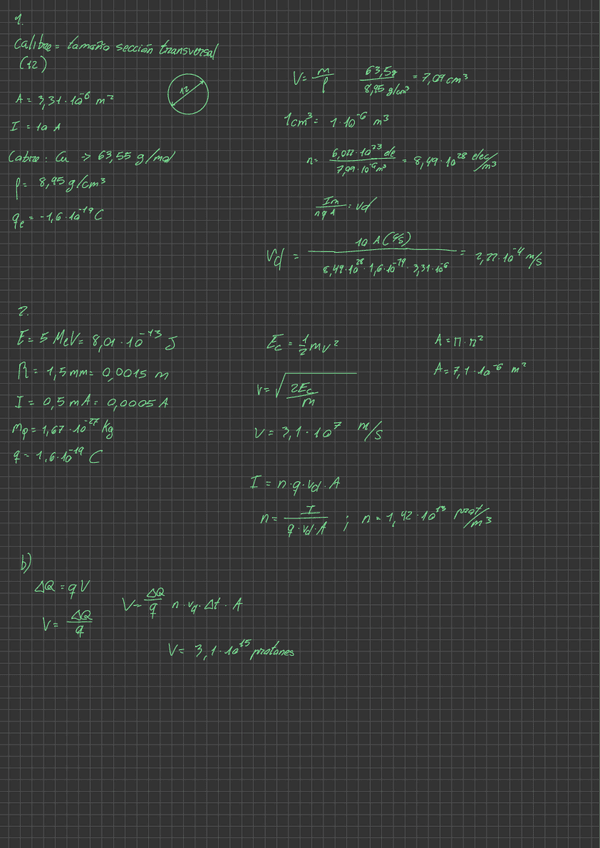 1.
Calibre = tamaño sección transversal
(12)
12
A = 3,31·10⁻⁶ m²
I = 10 A
Cobre: Cu → 63,55 g/mol
ρ = 8,95 g/cm³
qe = -1,6·10⁻¹⁹ C
V = m/ρ 63,5g / 8,95 g/cm³ = 7,09 cm³
1cm³ = 1·10⁻⁶ m³
n = 6,022·10²³ ele / 7,09·10⁻⁶ m³ = 8,49·10²⁸ elec/m³
I / n q A = vd
Vd = 10 A (C/s) / 8,49·10²⁸·1,6·10⁻¹⁹·3,31·10⁻⁶ = 2,22·10⁻⁴ m/s
2.
E = 5 MeV = 8,01·10⁻¹³ J
R = 1,5 mm = 0,0015 m
I = 0,5 mA = 0,0005 A
mp = 1,67·10⁻²⁷ kg
q = 1,6·10⁻¹⁹ C
Ec = 1/2 mv²
v = √(2Ec/m)
v = 3,1·10⁷ m/s
A = π·r²
A = 7,1·10⁻⁶ m²
I = n·q·vd·A
n = I / q·vd·A ; n = 1,42·10¹³ prot/m³
b)
ΔQ = qV
V = ΔQ/q
V = ΔQ/q n·vd·Δt·A
V = 3,1·10¹⁵ protones